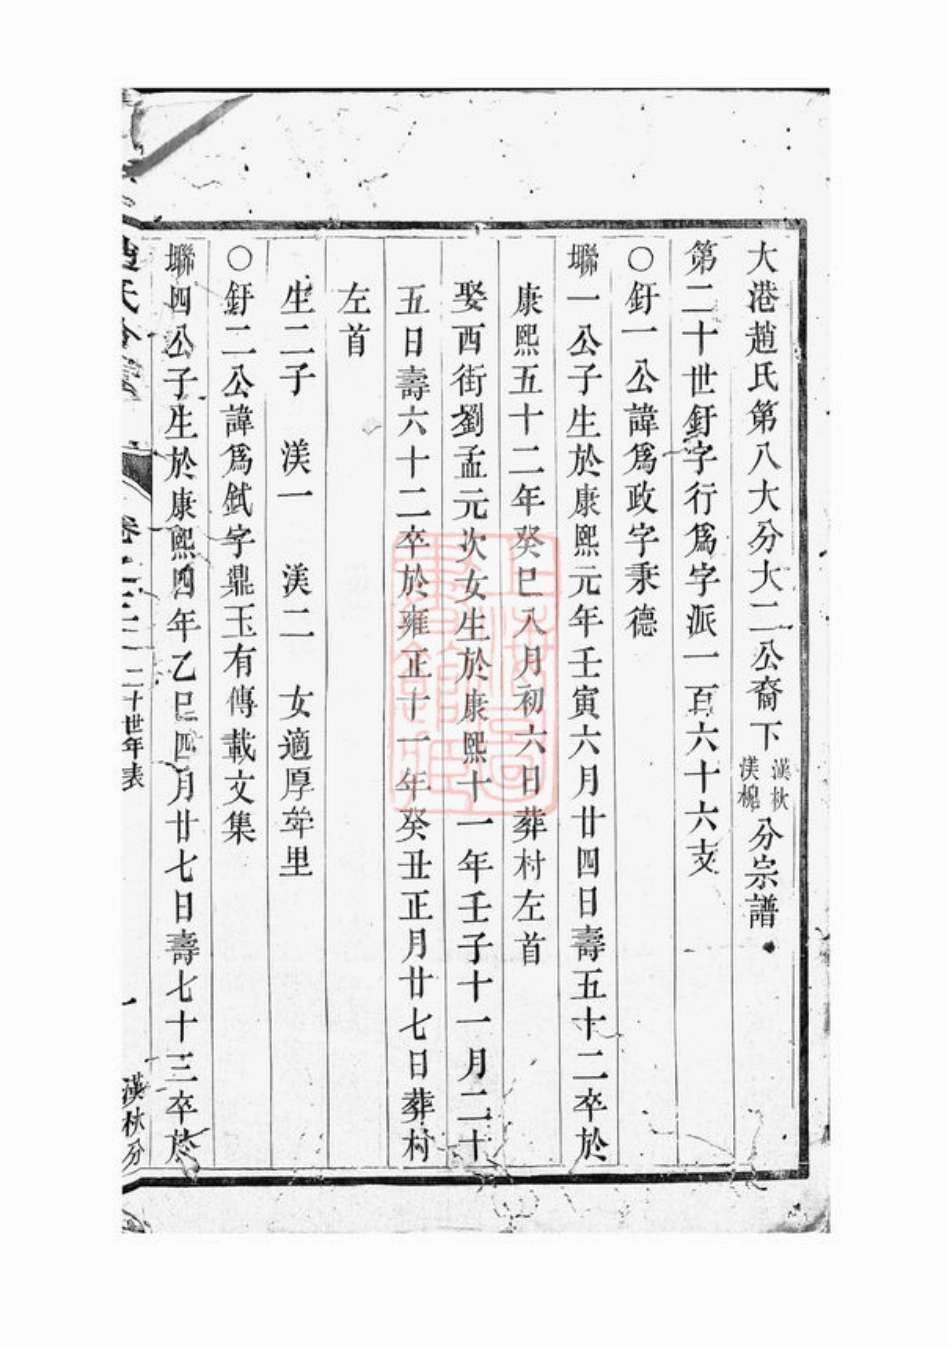 大港趙氏第八大分大二公裔下漢秋渼槐分宗譜
第二十世釪字行爲字派一百六十六支
○釪一公諱爲政字秉德
聯一公子生於康熙元年壬寅六月廿四日壽五十二卒於
康熙五十二年癸巳八月初六日葬村左首
娶西街劉孟元次女生於康熙十一年壬子十一月二十
五日壽六十二卒於雍正十一年癸丑正月廿七日葬村
左首
生二子 渼一 渼二 女適厚夅里
○釪二公諱爲鉽字鼎玉有傳載文集
聯四公子生於康熙四年乙巳四月廿七日壽七十三卒於
趙氏
卷 二十世年表 一 漢秋分